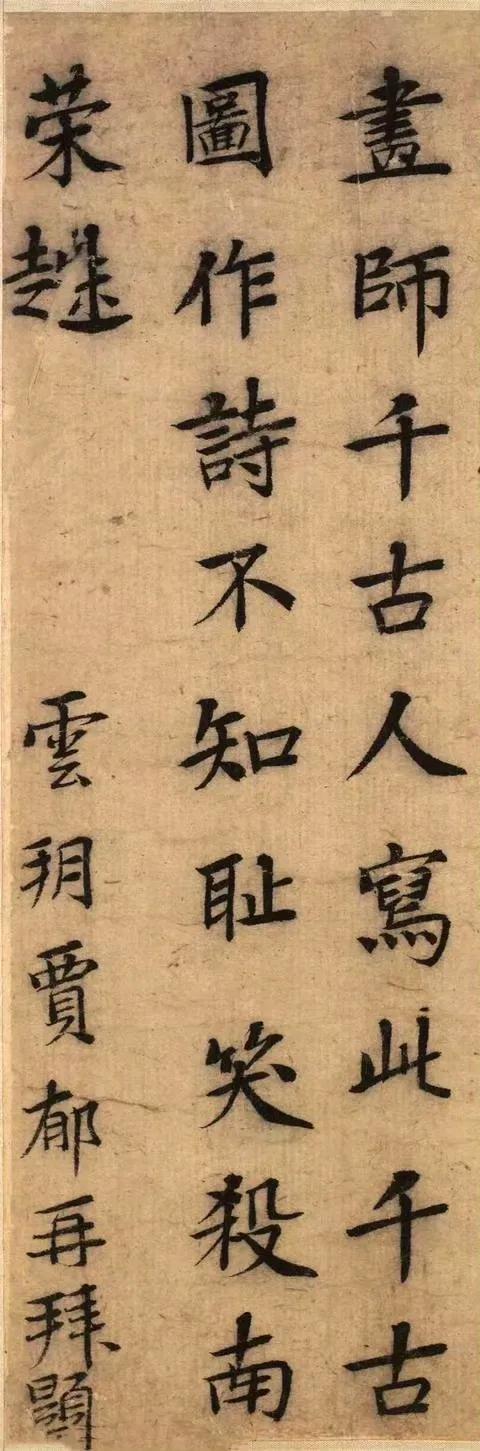 畫師千古人寫此千古
圖作詩不知耻笑殺南
荣趎
雲玥賈郁再拜顯